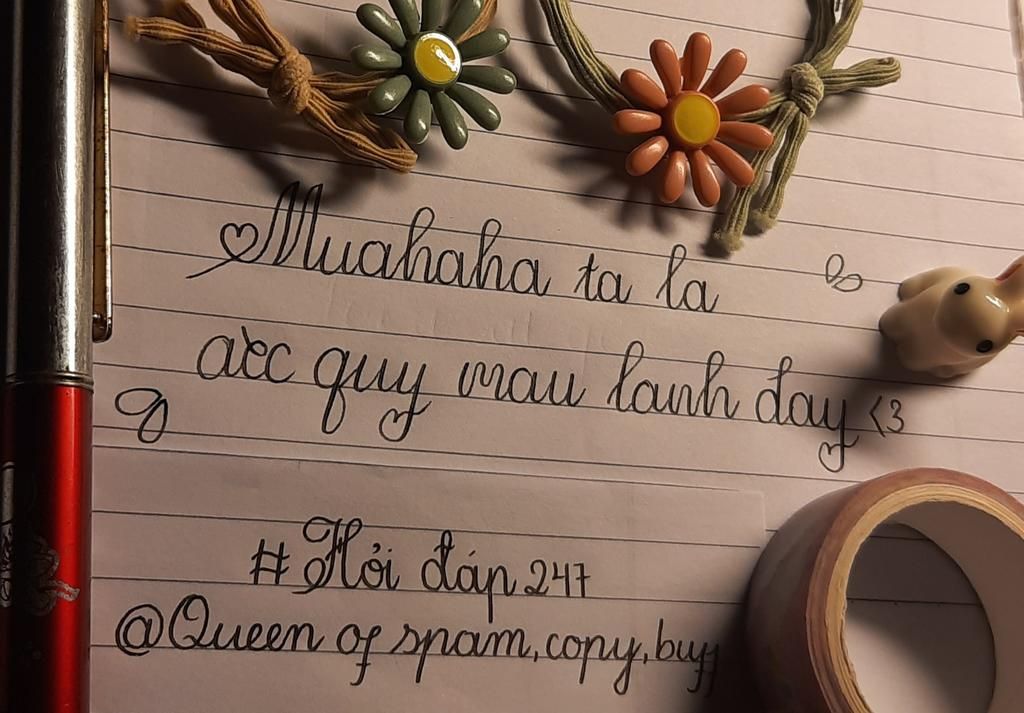 Muahaha ta la
acc quy mau lanh đay <3
#Hỏi đáp 247
@Queen of spam, copy, buff